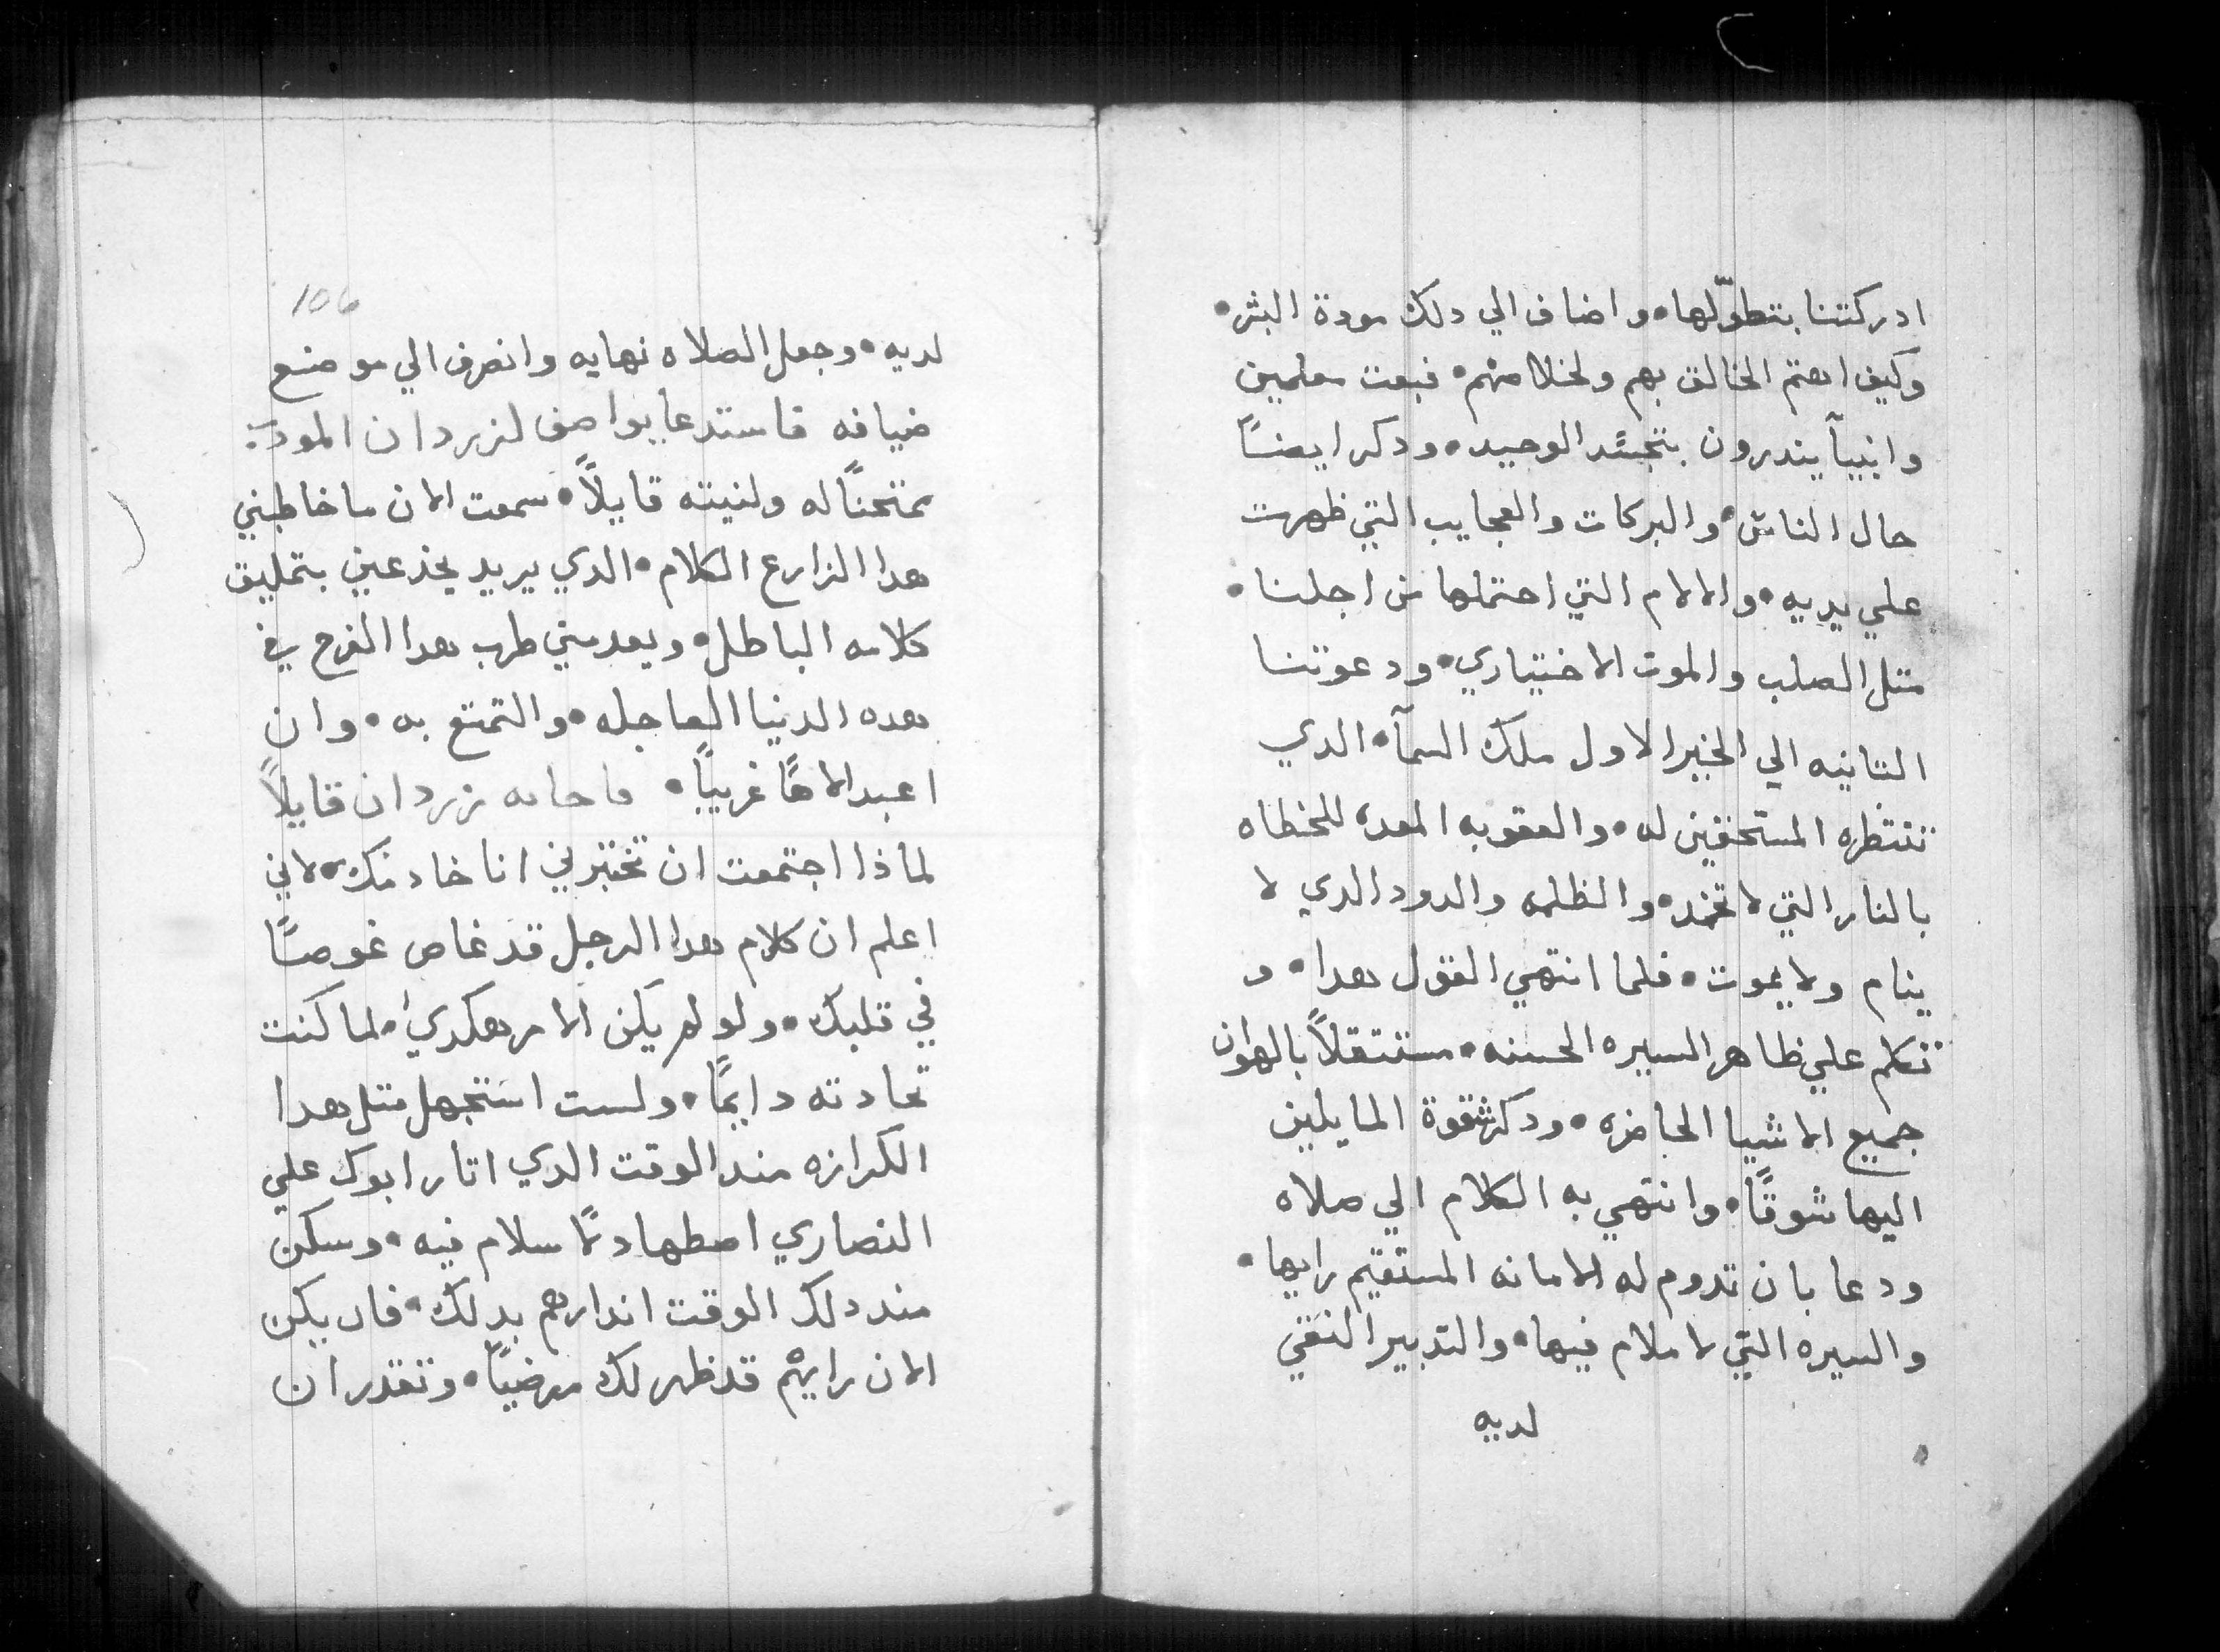 ادركتنا بتطوّلها• واضاف الي دلك مودة البشر•
وكيف اهتم الخالق بهم ولخلاصهم• فبعت معلمين
وانبيآ يندرون بتجسّد الوحيد• ودكر ايضًا
حال الناس• والبركات والعجايب التي ظهرت
علي يديه• والالام التي احتملها من اجلنا•
متل الصلب والموت الاختياري• ودعوتنا
التانيه الي الخير الاول ملك السمآ• الدي
تنتظره المستحقين له• والعقوبه المعده للخطاه
بالنار التي لا تخمد• والظلمه والدود الدي لا
ينام ولا يموت• فلما انتهي القول بهدا• و
تتكلم علي ظاهر السيره الحسنه• مستتقلاً بالهوان
جميع الاشيا الحاضره• ودكر شقوة المايلين
اليها شوقًا• وانتهي به الكلام الي صلاه
ودعا بان تدوم له الامانه المستقيم رايها•
والسيره التي لا ملام فيها• والتدبير النقي
لديه
106
لديه• وجعل الصلاه نهايه وانصرف الي موضع
ضيافه فاستدعا يواصف لزردان المودب
ممتحنًا له ولنيته قايلاً• سمعت الان ما خاطبني
هدا الزارع الكلام• الدي يريد يخدعني بتمليق
كلامه الباطل• ويعدمني طرب هدا الفرح في
هده الدنيا العاجله• والتمتع به• وان
اعبد الاهًا غريبًا• فاجابه زردان قايلاً
لماذا اجتمعت ان تختبرني انا خادمك• لاني
اعلم ان كلام هدا الرجل قد غاص غوصًا
في قلبك• ولو لم يكن الامر هكدي• لما كنت
تحادته دايمًا• ولست استجهل متل هدا
الكرازه مند الوقت الدي اتار ابوك علي
النصاري اضطهادًا لا سلام فيه• وسكن
مند دلك الوقت اندارهم بدلك• فان يكن
الان رايهم قد ظهر لك مرضيًا• وتقدر ان